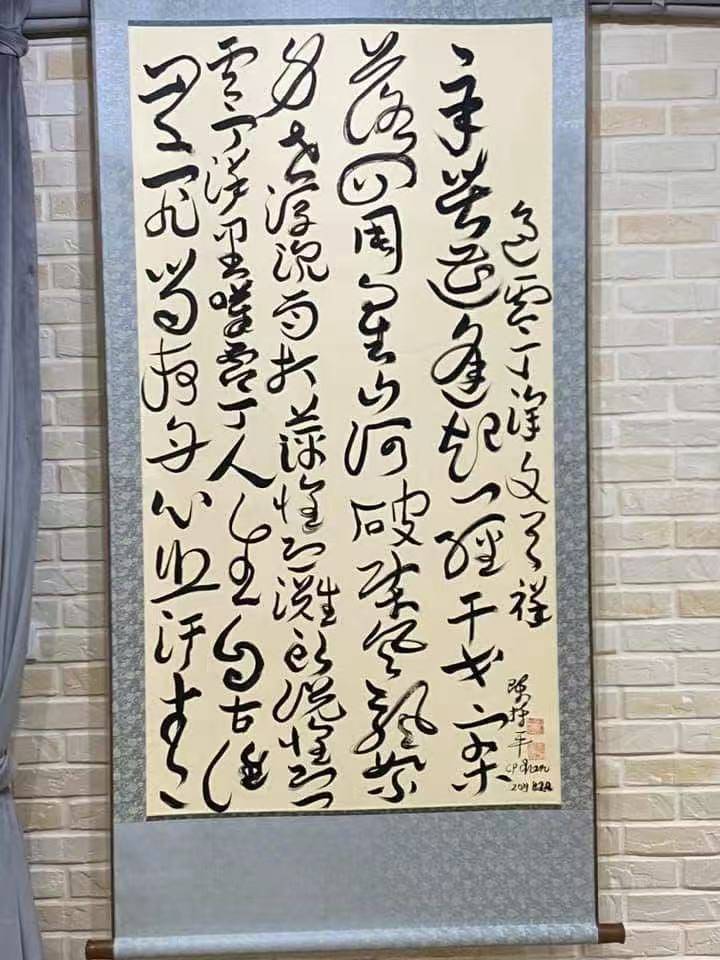 過零丁洋文天祥
辛苦遭逢起一經干戈寥
落四周星山河破碎風飄絮
身世浮沉雨打萍惶恐灘頭說惶恐
零丁洋里嘆零丁人生自古誰
無死留取丹心照汗青
陳平
CP Chan
2019